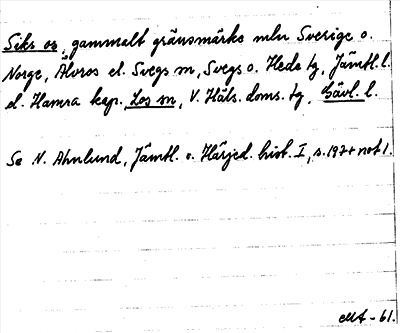 Siks oz, gammalt gränsmärke mln Sverige o.
Norge, Älvros el. Svegs sn, Svegs o. Hede tg, Jämtl. l.
el. Hamra kap. Los sn, V. Häls. doms. tg, Gävl. l.
Se N. Ahnlund, Jämtl. o. Härjed. hist. I, s. 197 + not 1.
-61.